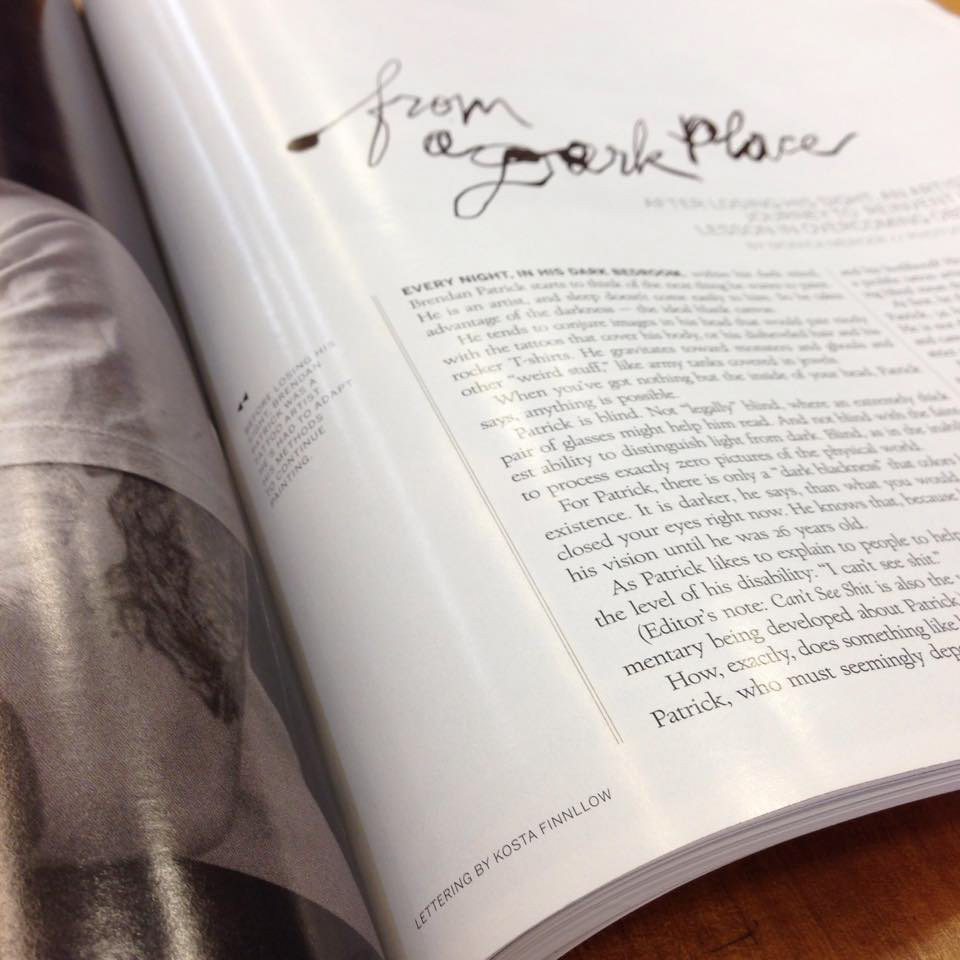 from
a dark place
AFTER LOSING HIS SIGHT, AN ARTIS
JOURNEY TO
LESSON IN OVERCOMING
EVERY NIGHT, IN HIS DARK BEDROOM, within his dark mind,
Brendan Patrick starts to think of the next thing he wants to paint.
He is an artist, and sleep doesn't come easily to him. So he takes
advantage of the darkness — the ideal blank canvas.
He tends to conjure images in his head that would pair nicely
with the tattoos that cover his body, or his disheveled hair and his
rocker T-shirts. He gravitates toward monsters and ghouls and
other "weird stuff," like army tanks covered in jewels.
When you've got nothing but the inside of your head, Patrick
says, anything is possible.
Patrick is blind. Not "legally" blind, where an extremely thick
pair of glasses might help him read. And not blind with the faint-
est ability to distinguish light from dark. Blind, as in the inabil
to process exactly zero pictures of the physical world.
For Patrick, there is only a "dark blackness" that colors h
existence. It is darker, he says, than what you would
closed your eyes right now. He knows that, because
his vision until he was 26 years old.
As Patrick likes to explain to people to help
the level of his disability: "I can't see shit."
(Editor's note: Can't See Shit is also the
mentary being developed about Patrick
How, exactly, does something like
Patrick, who must seemingly dep
BEFORE LOSING HIS
SIGHT, BRENDAN
PATRICK WAS A
TATTOO ARTIST.
HE'S HAD TO ADAPT
HIS METHODS
TO CONTINUE
PAINTING.
LETTERING BY KOSTA FINNLLOW